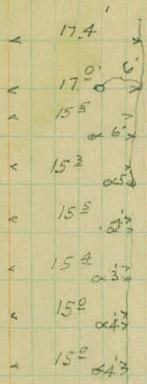 17.4
17.0 6'
15 5
∝ 6'
15 3
∝5'
15 5
∝4'
15 4
∝3'
15 0
∝4'
15 0
∝4'